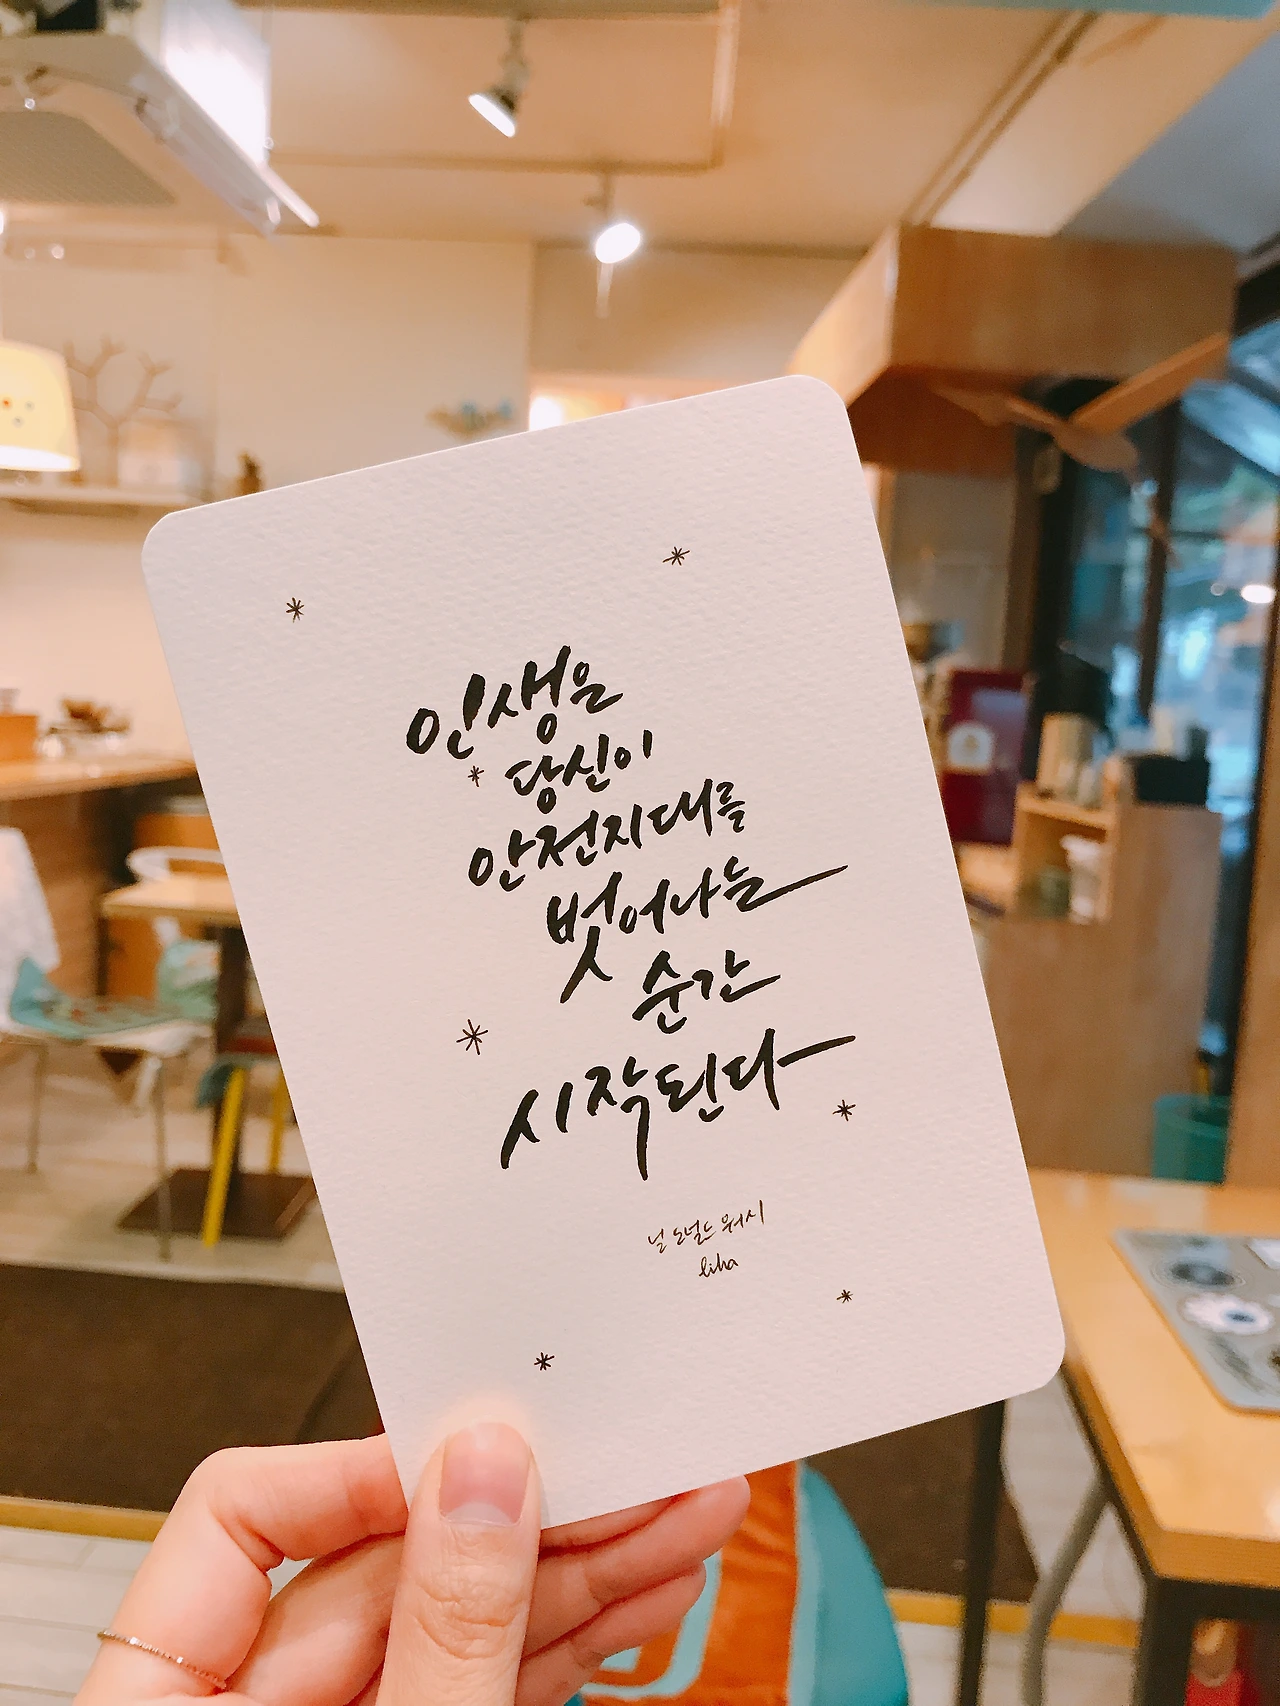 인생은
당신이
안전지대를
벗어나는
순간
시작된다
닐 도널드 월시
liha